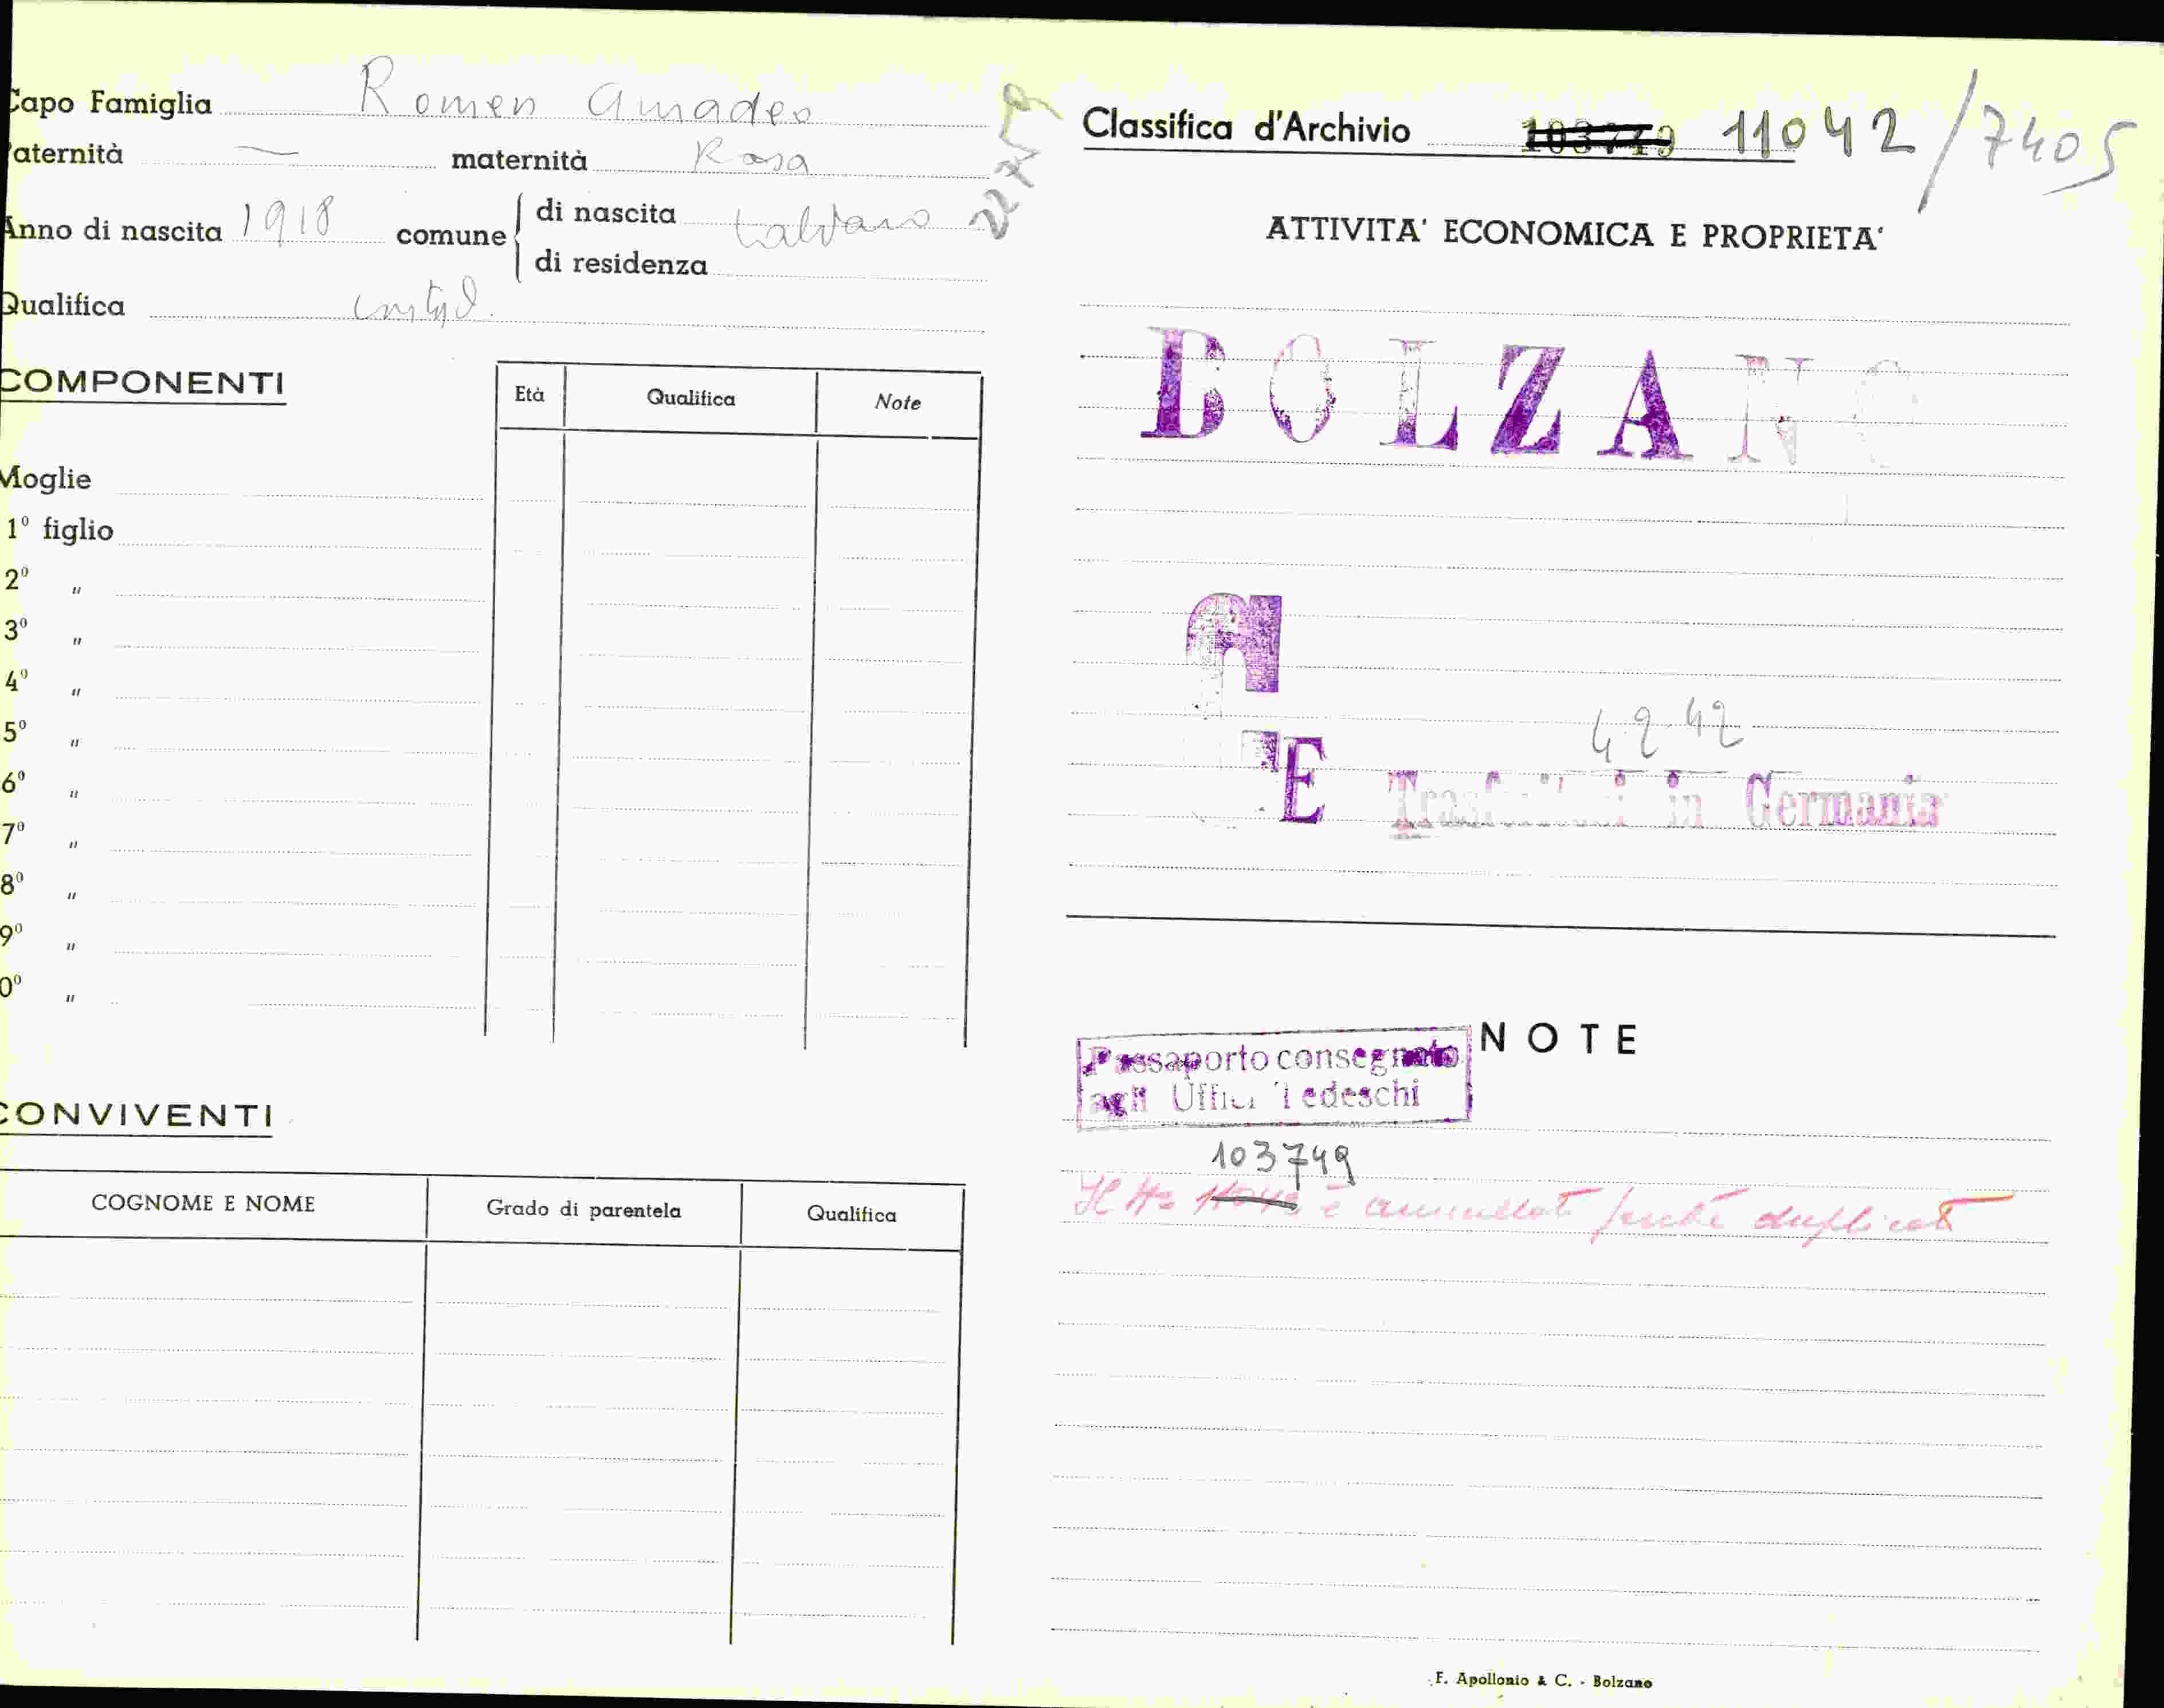 Capo Famiglia Romen Amadeo
Paternità — maternità Rosa
Anno di nascita 1918 comune di nascita Caldaro
di residenza
Qualifica
COMPONENTI
Età Qualifica Note
Moglie
1º figlio
2º "
3º "
4º "
5º "
6º "
7º "
8º "
9º "
0º "
CONVIVENTI
COGNOME E NOME Grado di parentela Qualifica
Classifica d'Archivio 103749 11042/7405
ATTIVITA' ECONOMICA E PROPRIETA'
BOLZANO
4 2 42
E Trasferitosi in Germania
NOTE
Passaporto consegnato
agli Uffici Tedeschi
103749
Il No 11042 è annullato perché duplicato
F. Apollonio & C. - Bolzano